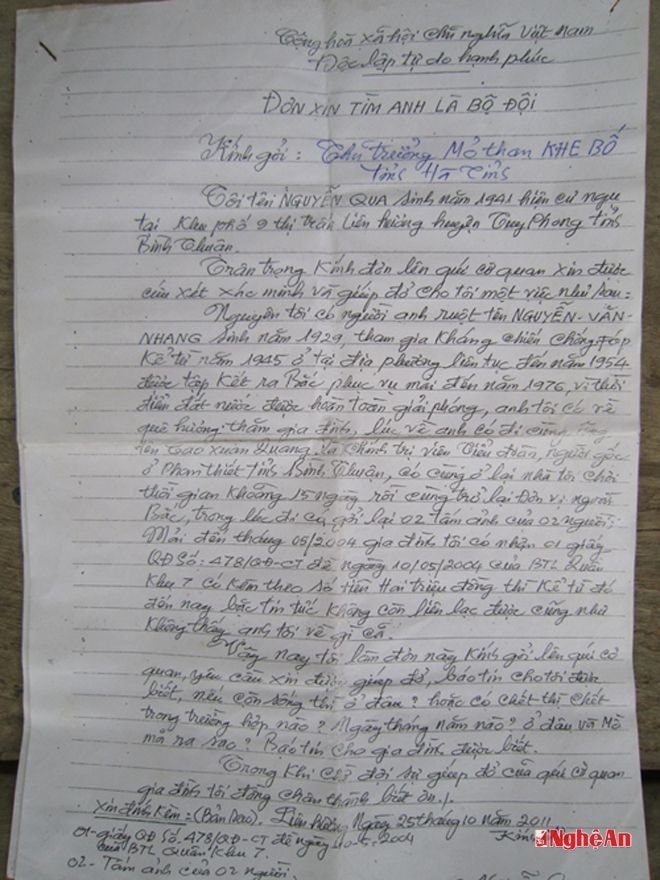 Cộng hoà xã hội chủ nghĩa Việt Nam
Độc lập tự do hạnh phúc
ĐƠN XIN TÌM ANH LÀ BỘ ĐỘI
Kính gởi: Thủ trưởng Mỏ than KHE BỐ
Tỉnh Hà Tỉnh
Tôi tên NGUYỄN QUA Sinh năm 1941 hiện cư ngụ
tại Khu phố 9 thị trấn Liên hương huyện Tuy Phong tỉnh
Bình Thuận.
Trân trọng Kính đơn lên quí cơ quan xin được
cứu xét xác minh và giúp đở cho tôi một việc như sau:
Nguyên tôi có người anh ruột tên NGUYỄN-VĂN-
NHANG Sinh năm 1929, tham gia Kháng chiến chống Pháp
Kể từ năm 1945 ở tại địa phương liên tục đến năm 1954
được tập Kết ra Bắc phục vụ mãi đến năm 1976, vì thời
điểm đất nước được hoàn toàn giải phóng, anh tôi có về
quê hương thăm gia đình, lúc về anh có đi cùng ông
tên Cao Xuân Quang là Chính trị viên Tiểu đoàn, người gốc
ở Phan thiết tỉnh Bình Thuận, có cùng ở lại nhà tôi chơi
thời gian Khoảng 15 ngày rồi cùng trở lại Đơn vị ngoài
Bắc, trong lúc đi có gởi lại 02 Tấm ảnh của 02 người.
Mải đến tháng 05/2004 gia đình tôi có nhận 01 giấy
QĐ Số: 478/QĐ-CT đề ngày 10/05/2004 của BTL Quân
Khu 7 có Kèm theo số tiền Hai triệu đồng thì Kể từ đó
đến nay bặc tin tức Không còn liên lạc được cũng như
Không thấy anh tôi về gì cả.
Vậy nay tôi làm đơn này Kính gởi lên quí cơ
quan, yêu cầu xin được giúp đở, báo tin cho tôi được
biết, nếu còn sống thì ở đâu? hoặc có chết thì chết
trong trường hợp nào? Ngày tháng năm nào? ở đâu và Mồ
mả ra sao? Báo tin cho gia đình được biết.
Trong Khi chờ đợi sự giúp đở của quí cơ quan
gia đình tôi đồng chân thành biết ơn./.
Xin đính Kèm: (Bản Sao). Liên hương Ngày 25 tháng 10 năm 2011
01- giấy QĐ Số 478/QĐ-CT đề ngày 10-5-2004 Kính
của BTL Quân Khu 7.
02- Tấm ảnh của 02 người.
Nghệ An